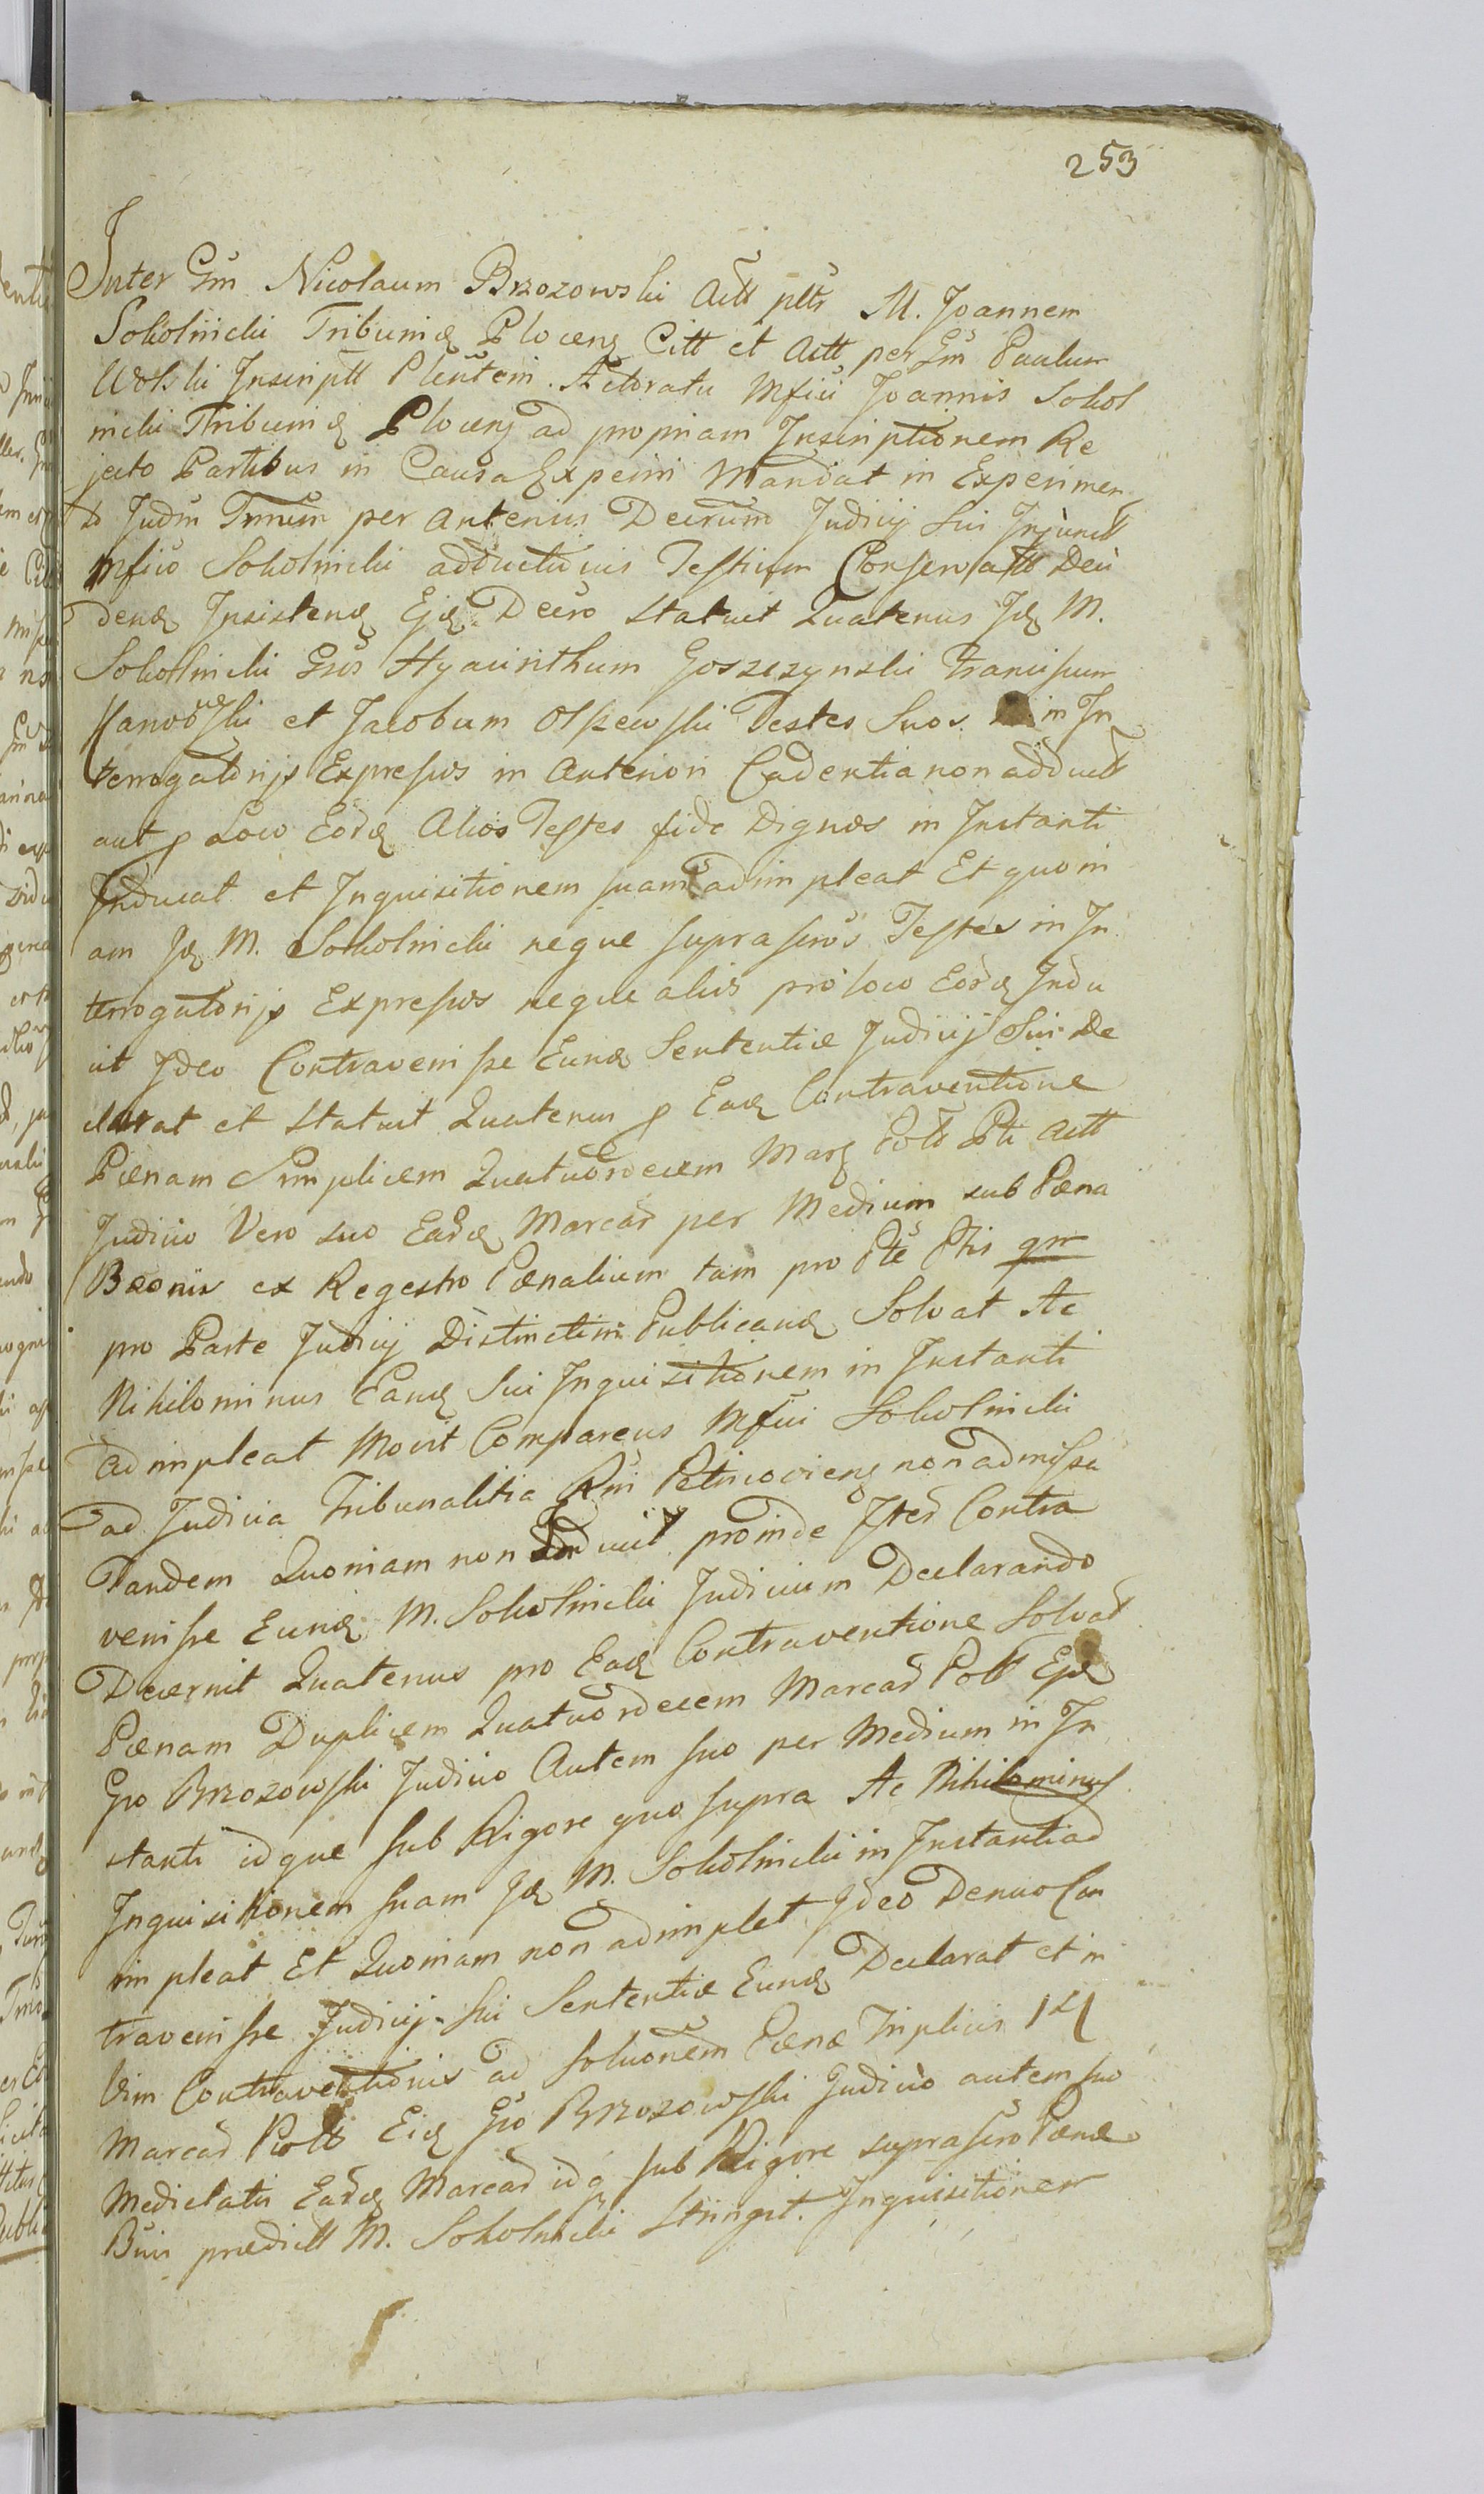 253
Inter Gm̃ Nicolaum Brzozowski Actt pltr M. Joannem
Sokolnicki Tribunũ Plocens Citt et Actt per Gm̃ Paulum
Wolski Inscriptt Plentem. Actoratu Mfici Joannis Sokol
nicki Tribuni Plocens ad propriam Inscriptionem Re
jecto Partibus in Causa Experiri Mandat in Experimen
to Judm Trnum per anterius Decretum Judicij Sui Injunctt
Mfico Sokolnicki adductionis Testium Conservatt Deci
dend Insistend Ejq Decro statuit Quatenus Id M.
Sokolnicki Gros Hyacinthum Goszczynski Franciscum
et Jacobum Olszewski Testes Suos in In
terrogatorijs Expressos in anteriori Cadentia non adduct
aut p Loco Eord Alios Testes fide Dignos in Instanti
Inducat et Inquisitionem suam adimpleat Et quoni
am Id M. Sokolnicki neque suprascros Testes in In
terrogatorijs Expressos neque alios pro loco Eord Indu
cit Ideo Contravenisse Eund Sententiæ Judicij Sui De
clarat et statuit Quatenus p Ead Contraventione
Pænam Simplicem Quatuordecem Marc Poll Pti Actt
Judicio Vero suo Easd Marcas per Medium sub Pæna
Baonis ex Regestro Pænalium tam pro Pte Ptis qm
pro Parte Judicij Distinctim Publicand Solvat Ac
Nihilominus Eand Sui Inquisitionem in Instanti
adimpleat Movit Comparens Mfici Sokolnicki
ad Judicia Tribunalitia Rni Petricoviens non admissa
Tandem Quoniam non adducit proinde Iterd Contra
venisse Eund M. Sokolnicki Judicium Declarando
Decernit Quatenus pro Ead Contraventione Solvat
Pænam Duplicem Quatuordecem Marcar Poll Ejd
Gro Brzozowski Judicio Autem suo per Medium in In
stanti idque sub Rigore quo supra Ac Nihilominus
Inquisitionem suam Id M. Sokolnicki in Instanti ad
impleat Et Quoniam non adimplet Ideo Denuo Con
travenisse Judicij Sui Sententiæ Eund Declarat et in
Vim Contraventionis ad soluonem Pænæ Triplicis 14
Marcar Poll Eid Gro Brzozowski Judicio autem suo
Medietatis Eard Marcar idq sub Rigore suprascro Pænæ
Bnis prædictt M. Sokolnicki Stringit. Inquisitionem